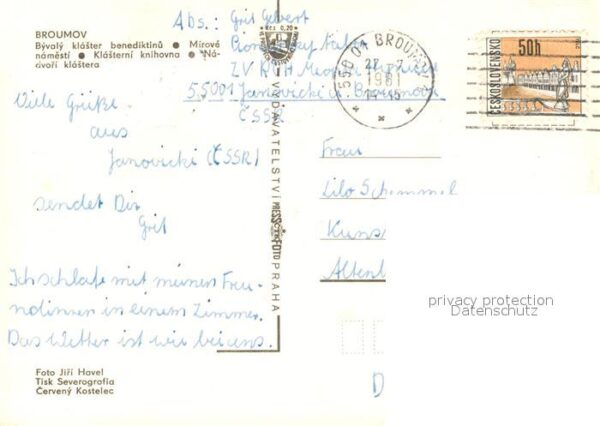 BROUMOV
Bývalý klášter benediktinů ● Mírové
náměstí ● Klášterní knihovna ● Ná-
dvoří kláštera
Abs.: Grit
Pionýrský tábor
ZV ROH
55001 Janovičky u Broumova
ČSSR
Kčs 0,20
550 01 BROUMOV 1
22.-7.
1981
14-15
ČESKOSLOVENSKO
50h
Viele Grüße
aus
Janovicki (ČSSR)
sendet Dir
Grit
Ich schlafe mit meinen Freu-
ndinnen in einem Zimmer.
Das Wetter ist wie bei uns.
VYDAVATELSTVÍ PRESSFOTO PRAHA
Frau
Lilo Schemmel
Kuns
Altenb
D
privacy protection
Datenschutz
Foto Jiří Havel
Tisk Severografia
Červený Kostelec